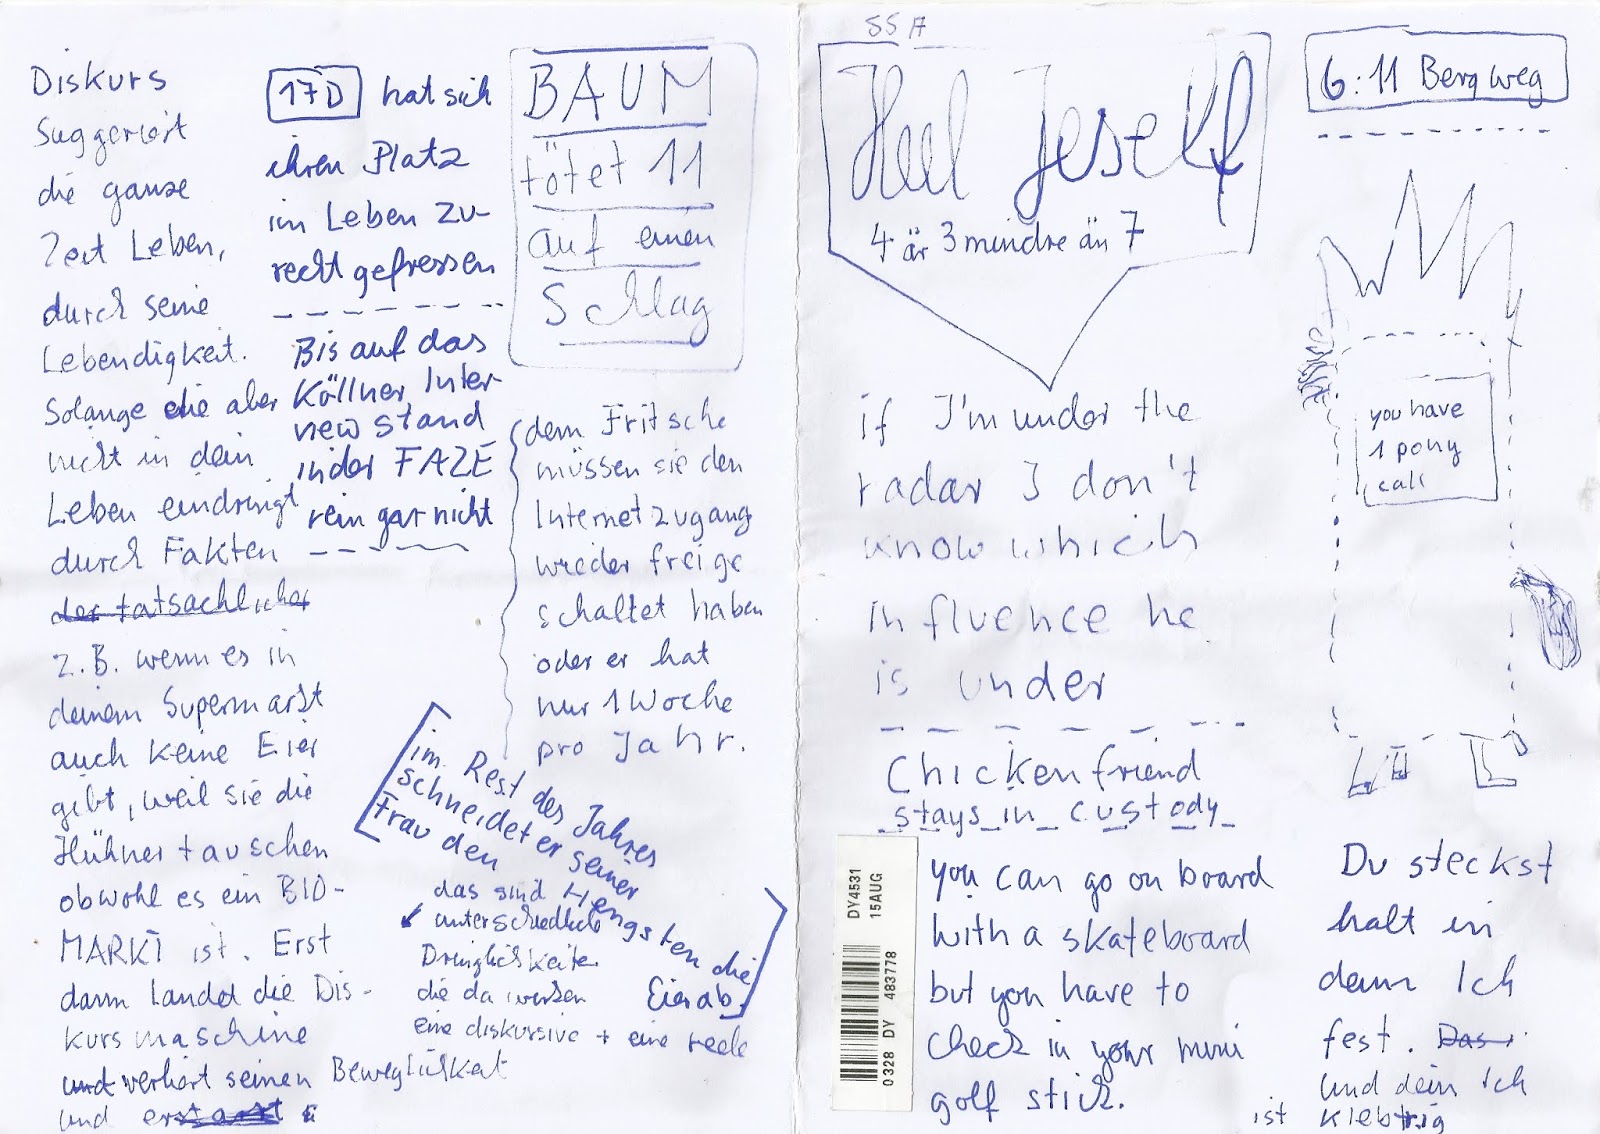 Diskurs
suggeriert
die ganze
Zeit Leben,
durch seine
Lebendigkeit.
Solange die aber
nicht in dein
Leben eindringt
durch Fakten
der tatsächlicher
z.B. wenn es in
deinem Supermarkt
auch keine Eier
gibt, weil sie die
Hühner tauschen
obwohl es ein BIO-
MARKT ist. Erst
dann landet die Dis-
kursmaschine
und verliert seinen Beweglichkeit
und
17D hat sich
ihren Platz
im Leben zu-
recht gefressen
Bis auf das
Köllner Inter-
view stand
in der FAZE
rein gar nicht
BAUM
tötet 11
auf einen
Schlag
dem Fritsche
müssen sie den
Internetzugang
wieder freige
schaltet haben
oder er hat
nur 1 Woche
pro Jahr.
im Rest des Jahres
schneidet er seiner
Frau den
Hengsten die
Eier ab
das sind
unterschiedliche
Dringlichkeiten
die da wirken
eine diskursive + eine reele
SSA
4 är 3 mindre än 7
if I'm under the
radar I don't
know which
influence he
is under
Chickenfriend
stays in custody
you can go on board
with a skateboard
but you have to
check in your mini
golf stick.
DY4531
15AUG
0328 DY 483778
6:11 Bergweg
you have
1 pony
call
Du steckst
halt in
dein Ich
fest. Das
und dein ich
ist klebrig